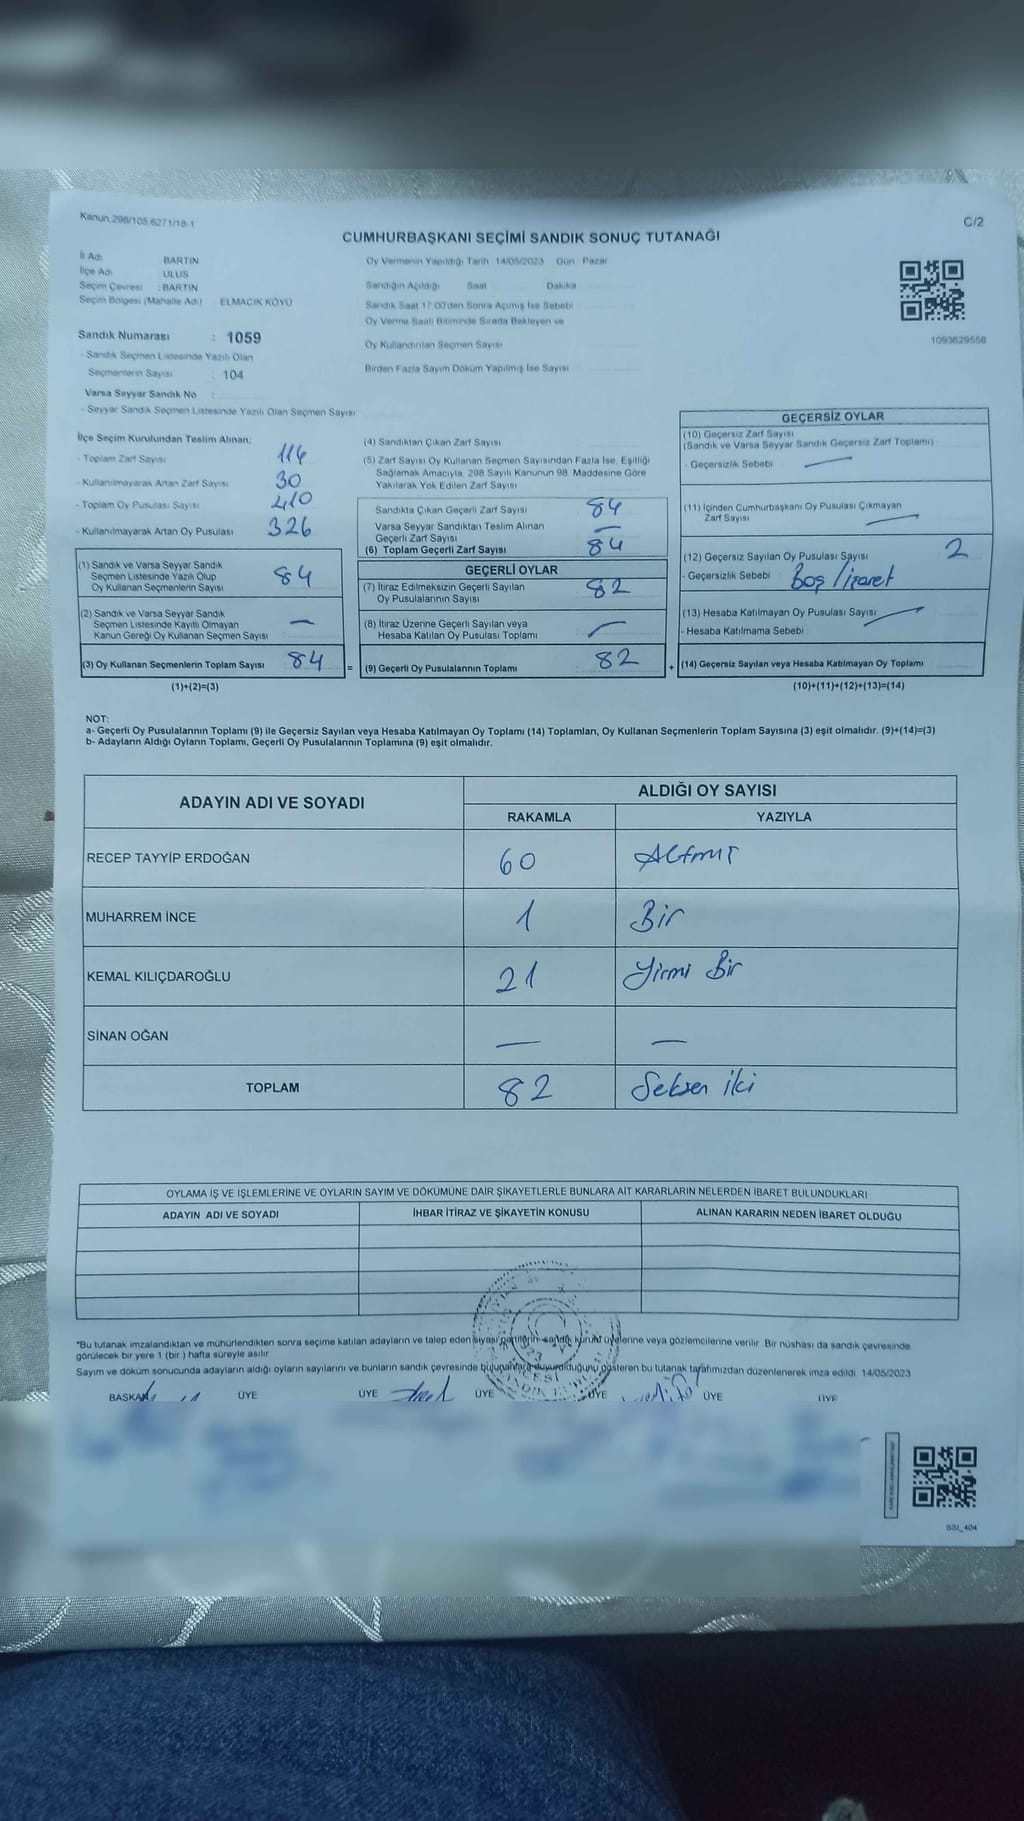 Kanun:298/105,6271/18-1
C/2
CUMHURBAŞKANI SEÇİMİ SANDIK SONUÇ TUTANAĞI
İl Adı BARTIN
İlçe Adı ULUS
Seçim Çevresi : BARTIN
Seçim Bölgesi (Mahalle Adı) ELMACIK KÖYÜ
Sandık Numarası : 1059
- Sandık Seçmen Listesinde Yazılı Olan
Seçmenlerin Sayısı : 104
Varsa Seyyar Sandık No :
- Seyyar Sandık Seçmen Listesinde Yazılı Olan Seçmen Sayısı
Oy Vermenin Yapıldığı Tarih : 14/05/2023 Gün : Pazar
Sandığın Açıldığı Saat Dakika
Sandık Saat 17:00'den Sonra Açılmış İse Sebebi
Oy Verme Saati Bitiminde Sırada Bekleyen ve
Oy Kullandırılan Seçmen Sayısı
Birden Fazla Sayım Döküm Yapılmış İse Sayısı
1093629558
İlçe Seçim Kurulundan Teslim Alınan;
- Toplam Zarf Sayısı 114
- Kullanılmayarak Artan Zarf Sayısı 30
- Toplam Oy Pusulası Sayısı 410
- Kullanılmayarak Artan Oy Pusulası 326
(1) Sandık ve Varsa Seyyar Sandık
Seçmen Listesinde Yazılı Olup
Oy Kullanan Seçmenlerin Sayısı 84
(2) Sandık ve Varsa Seyyar Sandık
Seçmen Listesinde Kayıtlı Olmayan
Kanun Gereği Oy Kullanan Seçmen Sayısı —
(3) Oy Kullanan Seçmenlerin Toplam Sayısı 84 =
(1)+(2)=(3)
(4) Sandıktan Çıkan Zarf Sayısı
(5) Zarf Sayısı Oy Kullanan Seçmen Sayısından Fazla İse, Eşitliği
Sağlamak Amacıyla, 298 Sayılı Kanunun 98. Maddesine Göre
Yakılarak Yok Edilen Zarf Sayısı
Sandıkta Çıkan Geçerli Zarf Sayısı 84
Varsa Seyyar Sandıktan Teslim Alınan
Geçerli Zarf Sayısı —
(6) Toplam Geçerli Zarf Sayısı 84
GEÇERLİ OYLAR
(7) İtiraz Edilmeksizin Geçerli Sayılan
Oy Pusulalarının Sayısı 82
(8) İtiraz Üzerine Geçerli Sayılan veya
Hesaba Katılan Oy Pusulası Toplamı —
(9) Geçerli Oy Pusulalarının Toplamı 82 +
GEÇERSİZ OYLAR
(10) Geçersiz Zarf Sayısı
(Sandık ve Varsa Seyyar Sandık Geçersiz Zarf Toplamı)
- Geçersizlik Sebebi —
(11) İçinden Cumhurbaşkanı Oy Pusulası Çıkmayan
Zarf Sayısı —
(12) Geçersiz Sayılan Oy Pusulası Sayısı 2
- Geçersizlik Sebebi Boş / izaret
(13) Hesaba Katılmayan Oy Pusulası Sayısı —
- Hesaba Katılmama Sebebi
(14) Geçersiz Sayılan veya Hesaba Katılmayan Oy Toplamı
(10)+(11)+(12)+(13)=(14)
NOT:
a- Geçerli Oy Pusulalarının Toplamı (9) ile Geçersiz Sayılan veya Hesaba Katılmayan Oy Toplamı (14) Toplamları, Oy Kullanan Seçmenlerin Toplam Sayısına (3) eşit olmalıdır. (9)+(14)=(3)
b- Adayların Aldığı Oyların Toplamı, Geçerli Oy Pusulalarının Toplamına (9) eşit olmalıdır.
ADAYIN ADI VE SOYADI ALDIĞI OY SAYISI
RAKAMLA YAZIYLA
RECEP TAYYİP ERDOĞAN 60 Altmış
MUHARREM İNCE 1 Bir
KEMAL KILIÇDAROĞLU 21 Yirmi Bir
SİNAN OĞAN — —
TOPLAM 82 Seksen iki
OYLAMA İŞ VE İŞLEMLERİNE VE OYLARIN SAYIM VE DÖKÜMÜNE DAİR ŞİKAYETLERLE BUNLARA AİT KARARLARIN NELERDEN İBARET BULUNDUKLARI
ADAYIN ADI VE SOYADI İHBAR İTİRAZ VE ŞİKAYETİN KONUSU ALINAN KARARIN NEDEN İBARET OLDUĞU
*Bu tutanak imzalandıktan ve mühürlendikten sonra seçime katılan adayların ve talep eden siyasi partilerin sandık kurulu üyelerine veya gözlemcilerine verilir. Bir nüshası da sandık çevresinde
görülecek bir yere 1 (bir) hafta süreyle asılır.
Sayım ve döküm sonucunda adayların aldığı oyların sayılarını ve bunların sandık çevresinde bulunanlara duyurulduğunu gösteren bu tutanak tarafımızdan düzenlenerek imza edildi. 14/05/2023
BAŞKAN ÜYE ÜYE ÜYE ÜYE ÜYE ÜYE
SSI_404